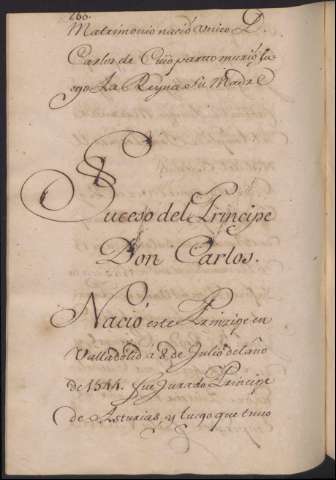 260.
Matrimonio nació unico D.
Carlos de Cuio parto murió lu
ego La Reyna su Madre
Suceso del Principe
Don Carlos.
Nació este Principe en
Valladolid á 8 de Julio del año
de 1544. fue Jurado Principe
de Asturias, y luego que tuvo